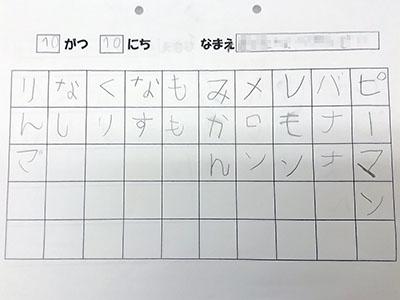 10 がつ 10 にち なまえ
ピーマン
バナナ
レモン
メロン
みかん
もも
なす
くり
なし
りんご